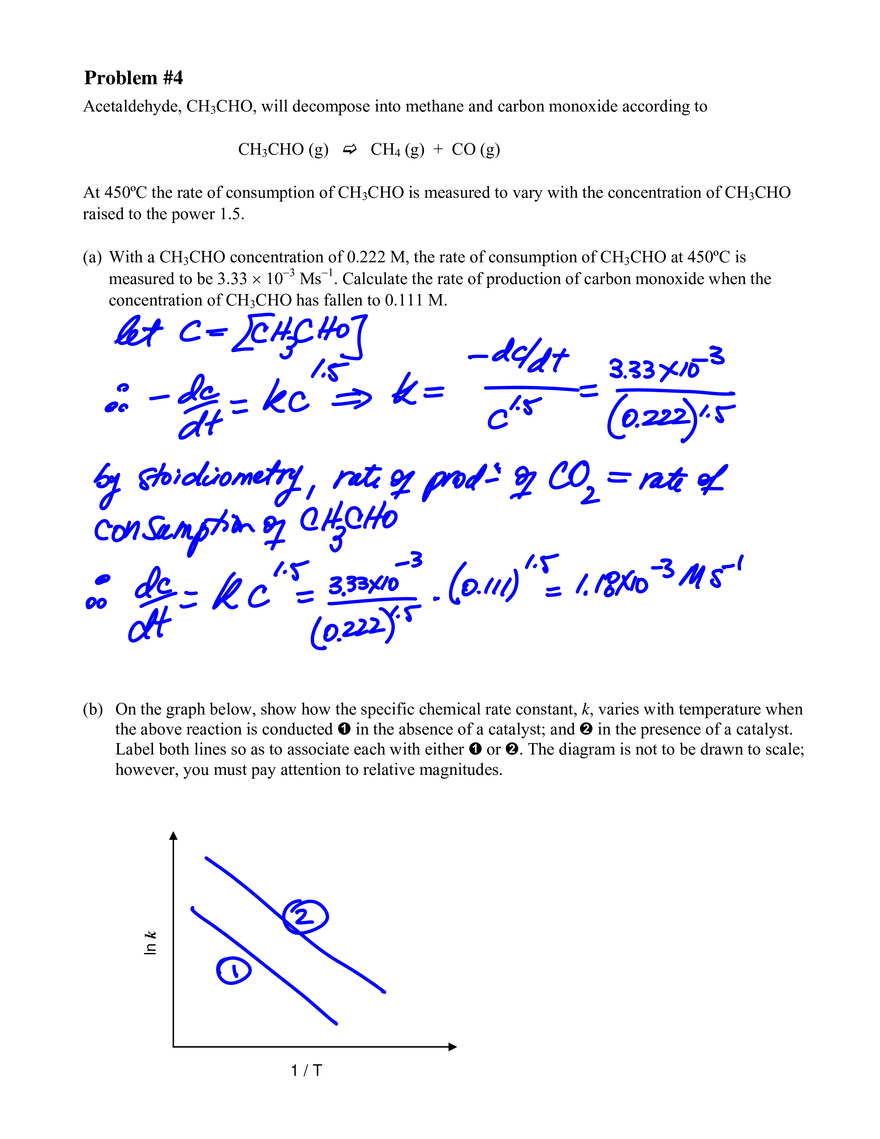 Problem #4
Acetaldehyde, CH₃CHO, will decompose into methane and carbon monoxide according to
CH₃CHO (g) ⇨ CH₄ (g) + CO (g)
At 450ºC the rate of consumption of CH₃CHO is measured to vary with the concentration of CH₃CHO
raised to the power 1.5.
(a) With a CH₃CHO concentration of 0.222 M, the rate of consumption of CH₃CHO at 450ºC is
measured to be 3.33 × 10⁻³ Ms⁻¹. Calculate the rate of production of carbon monoxide when the
concentration of CH₃CHO has fallen to 0.111 M.
let C = [CH₃CHO]
∴ -dc/dt = kc^1.5 ⇒ k = (-dc/dt)/c^1.5 = 3.33×10⁻³/(0.222)^1.5
by stoichiometry, rate of prodⁿ of CO₂ = rate of
consumption of CH₃CHO
∴ dc/dt = kc^1.5 = 3.33×10⁻³/(0.222)^1.5 · (0.111)^1.5 = 1.18×10⁻³ M s⁻¹
(b) On the graph below, show how the specific chemical rate constant, k, varies with temperature when
the above reaction is conducted ❶ in the absence of a catalyst; and ❷ in the presence of a catalyst.
Label both lines so as to associate each with either ❶ or ❷. The diagram is not to be drawn to scale;
however, you must pay attention to relative magnitudes.
②
①
ln k
1 / T